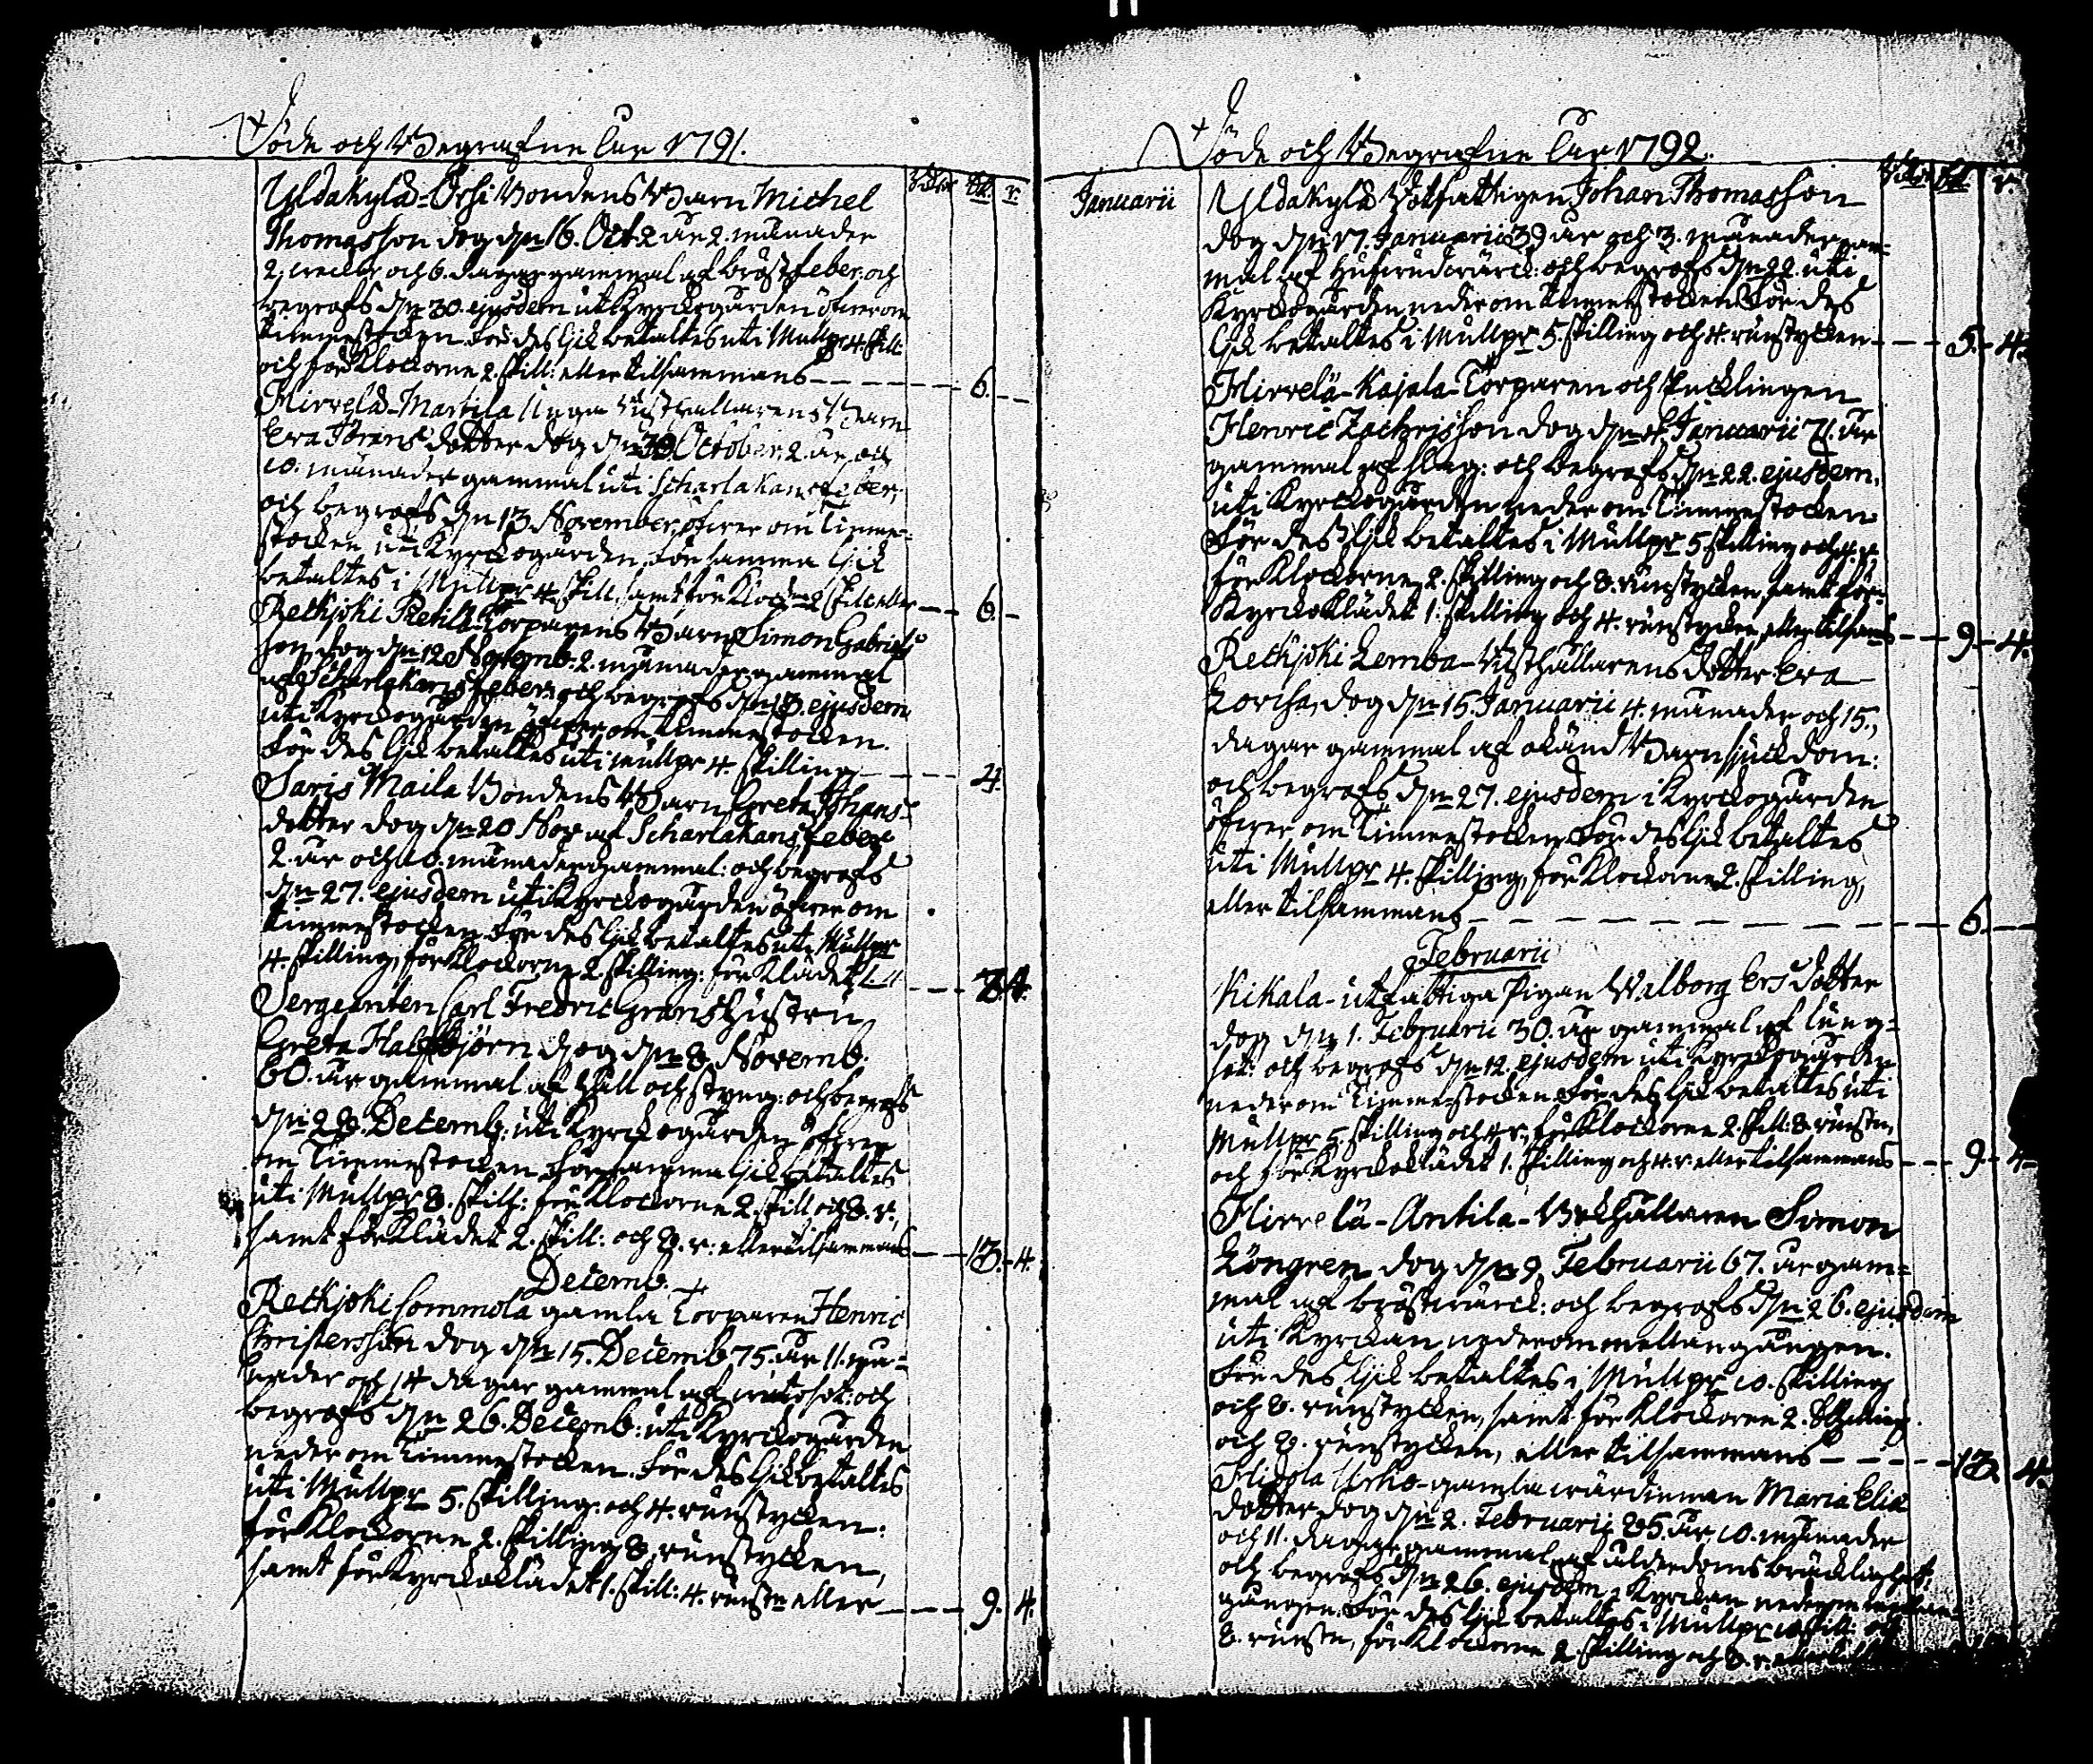 Döde och Begrafne åhr 1791.
Yldakylä-Orsi Bondens Barn Michel
Thomasson dog d̄n 16. Oct. 2 åhr 2. månader
2, weckor och 6. dagar gammal af bröstfeber: och
begrofs d̄n 30. ejusdem uti Kyrckogården öfwer om
timmestocken. för des lijck betaltes uti Mullpr 4. skill:
och för Klockorne 2. skill: eller tilsammans — 6.
Hirvelä-Martila Unga Husthallarens Barn
Eva Jörans dotter dog d̄n 30 October 2. åhr och
10. månader gammal uti Scharlakans feber,
och begrofs d̄n 13 November, öfwer om Timme-
stocken, uti Kyrckogården, för samma lijck
betaltes i Mullpr 4. skill, samt för Klock̄ne 2 skill: eller — 6.
Reckjoki Torparens Barn Simon Gabriels
son dog d̄n 12 Novemb: 2. månader gammal
af Scharlakans feber: och begrofs d̄n 13. ejusdem
uti Kyrckogården öfwer om timmestocken.
för des lijck betaltes uti mullpr 4. skilling — 4.
Saris Maila Bondens Barn Greta Johans-
dotter dog d̄n 20 Nov af Scharlakans feber
2. åhr och 10. månader gammal: och begrofs
d̄n 27. ejusdem uti Kyrckogården öfwer om
timmestocken för des lijck betaltes uti Mullpr
4. skilling, för Klockorne 2. skilling: för Klädet 1. 4 — 7. 4.
Sergeanten Carl Fredric Grans Hustru
Greta dog d̄n 8 Novemb:
60. åhr gammal af håll och styng: och begrofs
d̄n 28. Decemb: uti Kyrckogården öfwer
om Timmestocken för samma lijck betaltes
uti Mullpr 8. skill: för Klockorne 2. skill och 8. r.,
samt för Klädet 2. skill: och 8. r: eller tilsammans — 13. 4.
Decemb.
Reckjoki Sommola gamla Torparen Henric
Christersson dog d̄n 15. Decemb 75. åhr 11. må-
nader och 14 dagar gammal af och
begrofs d̄n 26. Decemb: uti Kyrckogården
neder om Timmestocken. för des lijck betaltes
uti Mullpr 5. skilling: och 4. runstycken:
för Klockorne 2. skilling 8 runstycken,
samt för Kyrckoklädet 1. skill: 4. runst̄n eller — 9. 4.
Döde och Begrafne åhr 1792.
Januarii
Yldakylä Johan Thomasson
dog d̄n 17. Januarii 39 åhr och 3. månader gam-
mal af hufwudwärck: och begrofs d̄n 22. uti
Kyrckogården neder om timmestocken för des
lijck betaltes i Mullpr 5. skilling och 4. runstycken — 5. 4.
Hirvelä-Kajala-Torparen och
Henric Zachrisson dog d̄n Januarii 71. åhr
gammal af slag: och begrofs d̄n 22. ejusdem,
uti Kyrckogården neder om Timmestocken.
för des lijck betaltes i Mullpr 5 skilling och 4. r,
för Klockorne 2. skilling och 8. runstycken, samt för
Kyrckoklädet 1. skilling och 4. runstycken, eller tilsams — 9. 4.
Reckjoki Lemba- Husthållarens dotter Eva
Lovisa, dog d̄n 15. Januarii 4. månader och 15.
dagar gammal af okänd Barnsjuckdom:
och begrofs d̄n 27. ejusdem i Kyrckogården
öfwer om Timmestocken för des lijck betaltes
uti Mullpr 4. skilling, för Klockorne 2. skilling,
eller tilsammans — 6.
Februarii
Kikala- utfattiga Pigan Walborg Ers dotter
dog d̄n 1. Februarii 30. åhr gammal af lung-
sot: och begrofs d̄n 12. ejusdem uti Kyrckogården
neder om Timmestocken för des lijck betaltes uti
Mullpr 5. skilling och 4 r., för Klockorne 2. skill: 8. runstn,
och för Kyrckoklädet 1. skilling och 4. r. eller tilsammans — 9. 4
Hirvelä-Antila- Simon
Löngren dog d̄n 9. Februarii 67. åhr gam-
mal af bröstwärck: och begrofs d̄n 26. ejusdem
uti Kyrckan neder om mellangången.
för des lijck betaltes i Mullpr 10. skilling
och 8. runstycken, samt för Klockorne 2. skilling
och 8. runstycken, eller tilsammans — 13. 4.
gamla wärdinnan Maria Elia
dotter dog d̄n 2. Februarii 85. åhr, 10. månader
och 11. dagar gammal af ålderdoms bräcklighet,
och begrofs d̄n 26. ejusdem i Kyrckan neder om mellan-
gången. för des lijck betaltes i Mullpr 10 skill: och
8. runstn, för Klockorne 2. skilling och 8. r.